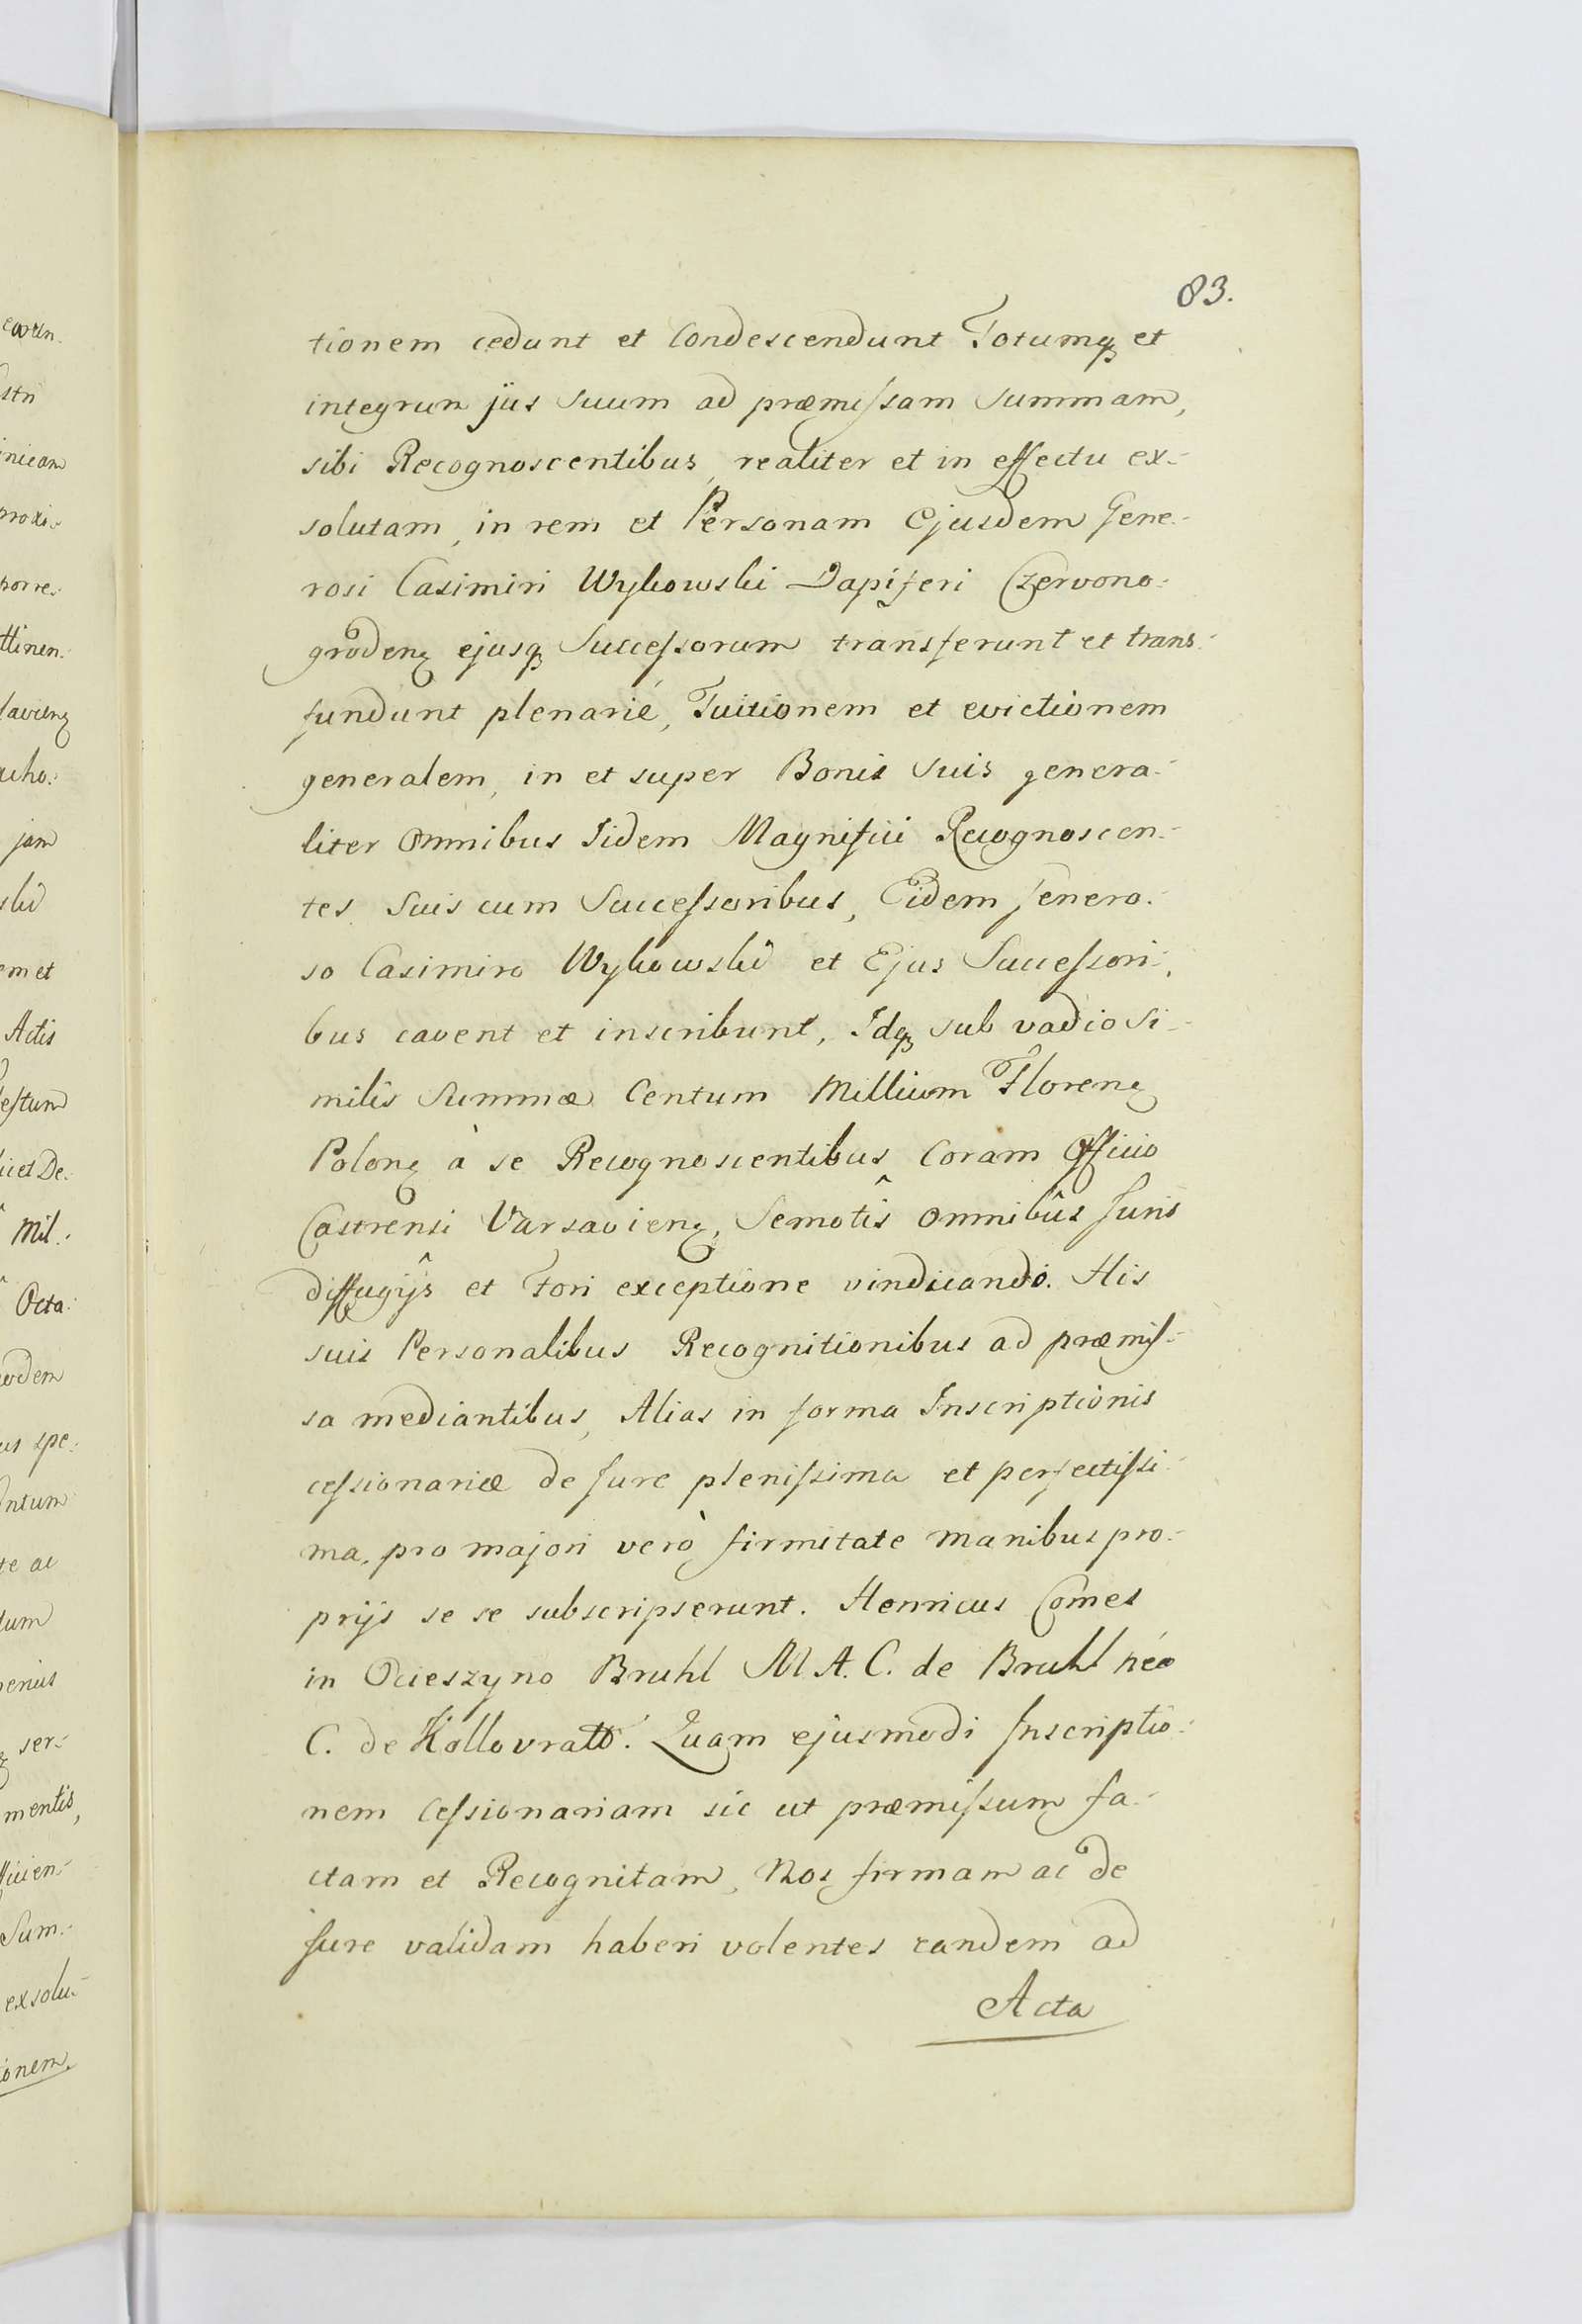 83.
tionem cedunt et Condescendunt Totumq et
integrum jus Suum ad præmissam Summam,
sibi Recognoscentibus, realiter et in effectu ex-
solutam, in rem et Personam Ejusdem Gene-
rosi Casimiri Wykowski Dapiferi Czervono-
grodenq ejusq Successorum transferunt et trans-
fundunt plenarié, Tuitionem et evictionem
generalem, in et super Bonis Suis genera-
liter Omnibus Iidem Magnifici Recognoscen-
tes Suis cum Successoribus, Eidem Genero-
so Casimiro Wykowski et Ejus Successori-
bus cavent et inscribunt, Idq sub vadio Si-
milis Summæ Centum Millium Florenq
Polonq à se Recognoscentibus Coram Officio
Castrensi Varsavienq, Semotîs omnibûs Juris
diffugijs et Fori exceptione vindicando. His
suis Personalibus Recognitionibus ad præmis-
sa mediantibus, Alias in forma Inscriptionis
cessionariæ de Jure plenissima et perfectissi-
ma, pro majori verò firmitate manibus pro-
prijs se se subscripserunt. Henricus Comes
in Ocieszyno Bruhl M A. C. de Bruhl née
C. de Kollovratt. Quam ejusmodi Inscriptio-
nem Cessionariam sic ut præmissum fa-
ctam et Recognitam, Nos firmam ac de
Jure validam haberi volentes eandem ad
Acta
Actis
Mil.
Octa
jam
em et
us spe-
te ac
ser-
mentis,
Sum-
exsolu-
ionem